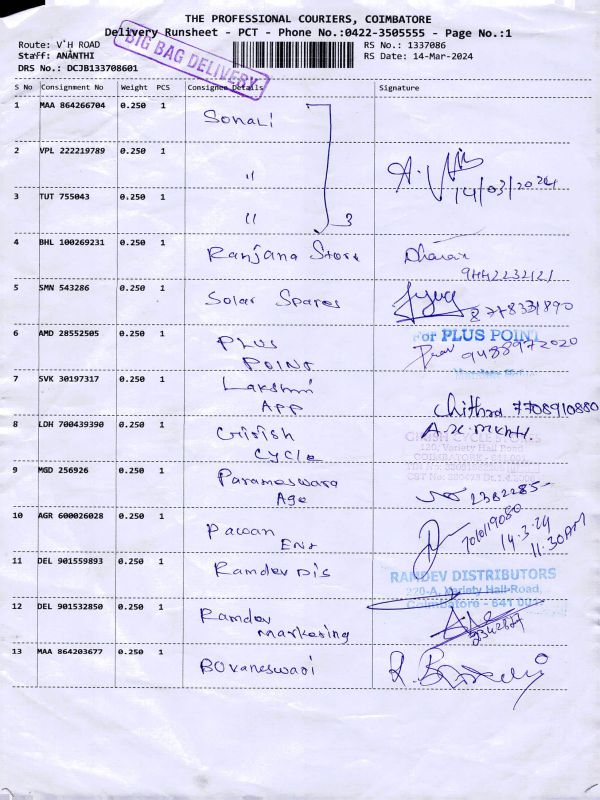 THE PROFESSIONAL COURIERS, COIMBATORE
Delivery Runsheet - PCT - Phone No.:0422-3505555 - Page No.:1
Route: V"H ROAD
RS No.: 1337086
Staff: ANANTHI
RS Date: 14-Mar-2024
DRS No.: DCJB133708601
BIG BAG DELIVERY
S No Consignment No Weight PCS Consignee Details Signature
1 MAA 864266704 0.250 1 Sonali
2 VPL 222219789 0.250 1 "
14/03/2024
3 TUT 755043 0.250 1 " 3
4 BHL 100269231 0.250 1 Ranjana Store
9442232121
5 SMN 543286 0.250 1 Solar Spares
8778331890
6 AMD 28552505 0.250 1 PLUS
POINT
For PLUS POINT
9488972020
7 SVK 30197317 0.250 1 Lakshmi
APP
Chithra 7708910880
8 LDH 700439390 0.250 1 Girish
CYCLE
GIRISH CYCLE STORES
120, Variety Hall Road
COIMBATORE - 641 001
9 MGD 256926 0.250 1 Parameswara
Age
2382285
10 AGR 600026028 0.250 1 Pawan
Ent
14.3.24
11:30AM
11 DEL 901559893 0.250 1 Ramdev Dis
RAMDEV DISTRIBUTORS
220-A, Variety Hall Road,
Coimbatore - 641 001
12 DEL 901532850 0.250 1 Ramdev
Marketing
13 MAA 864203677 0.250 1 BOvaneswari